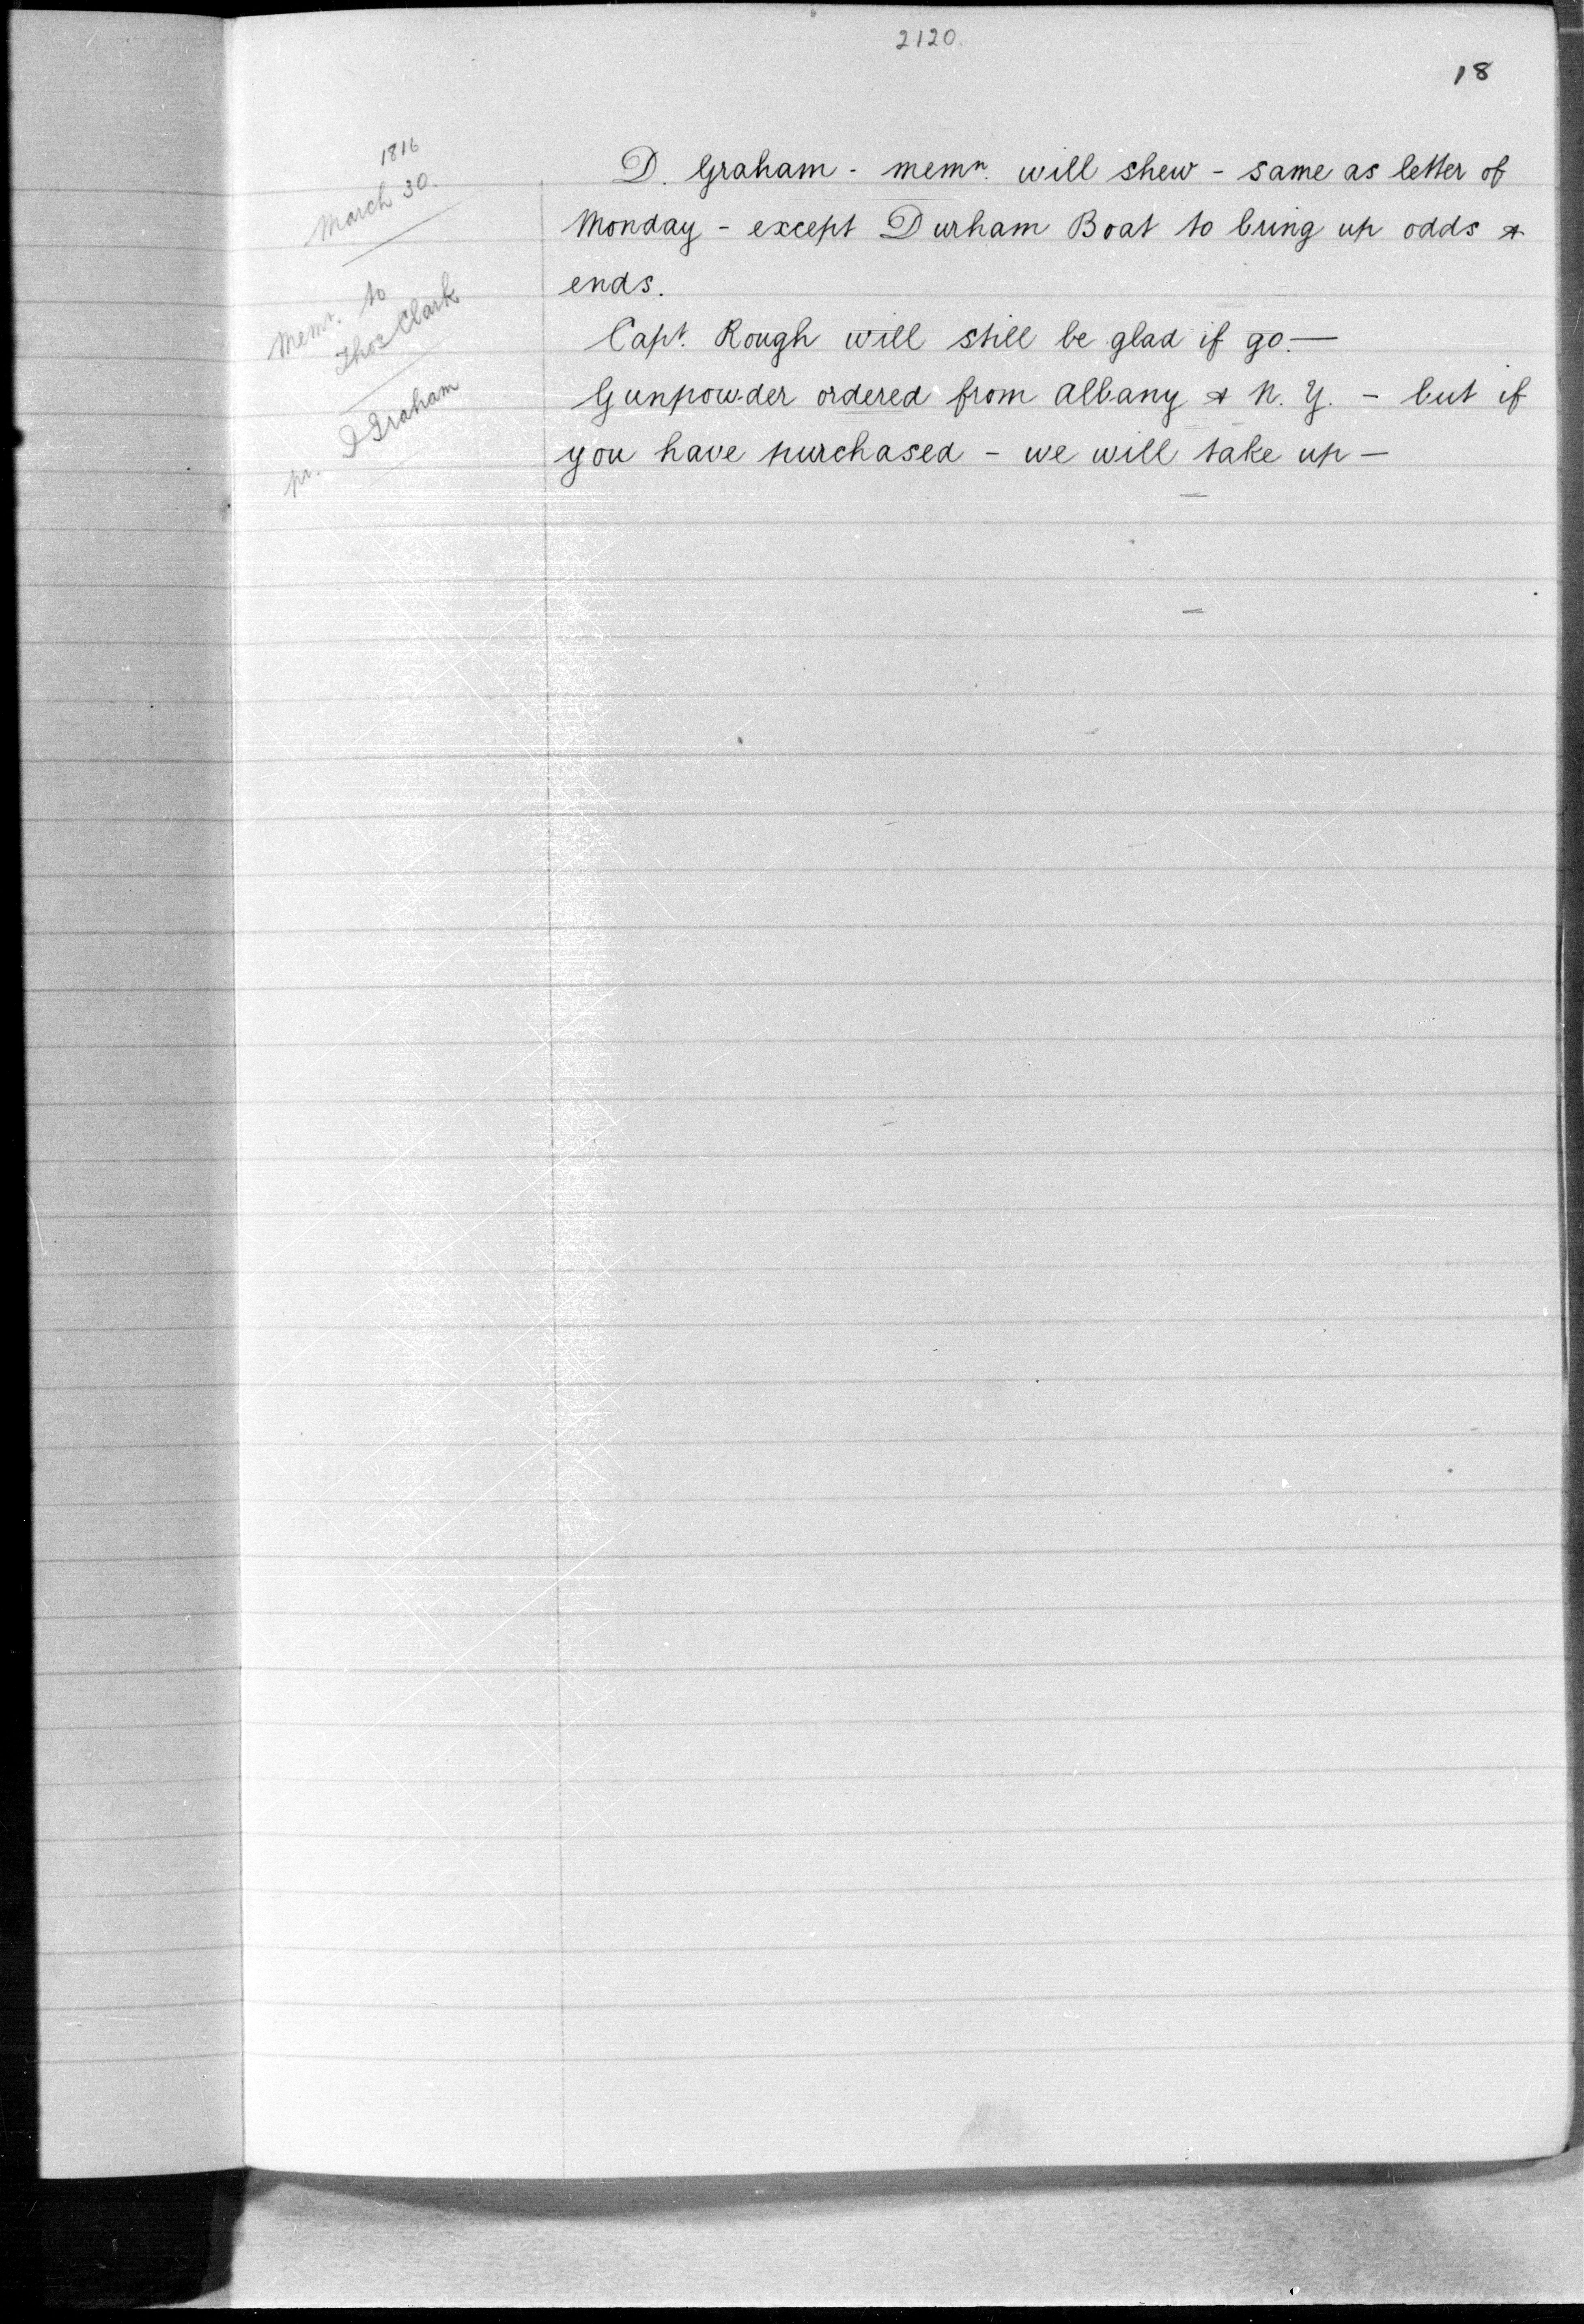 2120.
18
1816
March 30.
Memn. to
Thos Clark
pr. D Graham
D. Graham - memn. will shew - same as letter of
Monday - except Durham Boat to bring up odds &
ends.
Capt. Rough will still be glad if go.—
Gunpowder ordered from Albany & N. Y. - but if
you have purchased - we will take up —